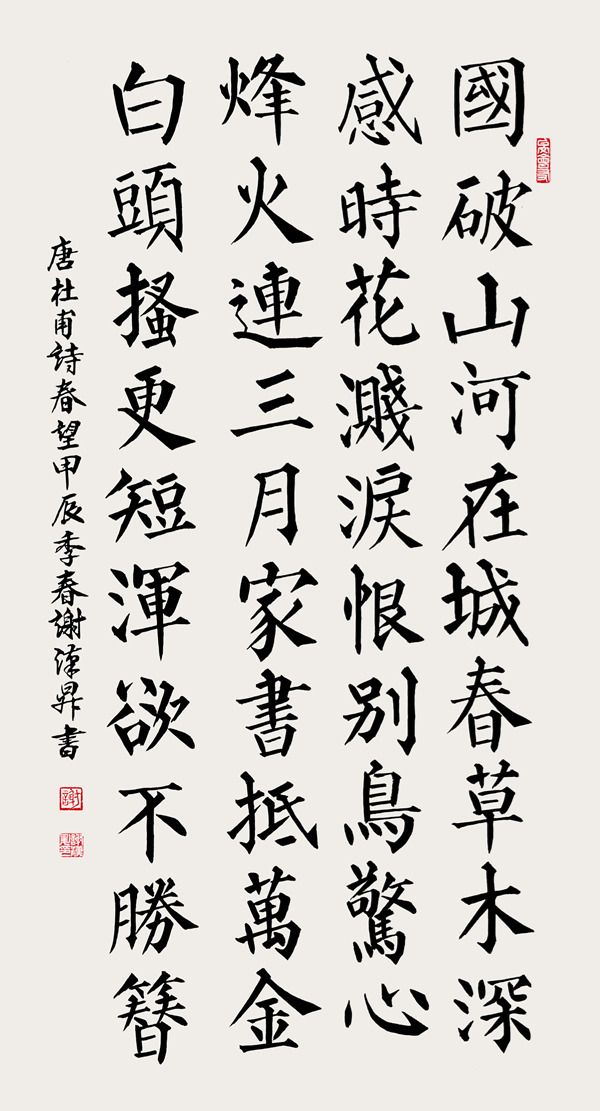 國破山河在城春草木深
感時花濺淚恨別鳥驚心
烽火連三月家書抵萬金
白頭搔更短渾欲不勝簪
唐杜甫詩春望甲辰季春謝漢昇書
謝